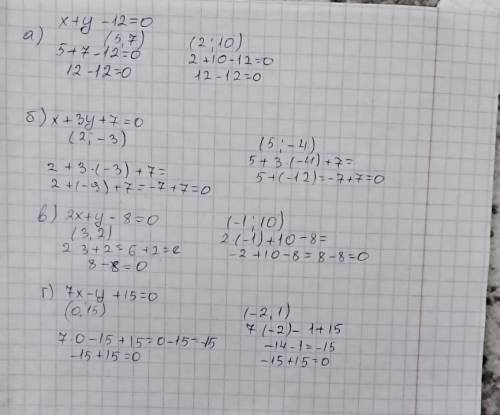 а) x+y-12=0
(5,7) (2;10)
5+7-12=0 2+10-12=0
12-12=0 12-12=0
б) x+3y+7=0
(2;-3) (5;-4)
2+3·(-3)+7= 5+3·(-4)+7=
2+(-9)+7=-7+7=0 5+(-12)=-7+7=0
в) 2x+y-8=0 (-1;10)
(3,2) 2(-1)+10-8=
2 3+2=6+2=8 -2+10-8=8-8=0
8-8=0
г) 7x-y+15=0 (-2,1)
(0,15) 7(-2)-1+15
7·0-15+15=0-15=-15 -14-1=-15
-15+15=0 -15+15=0